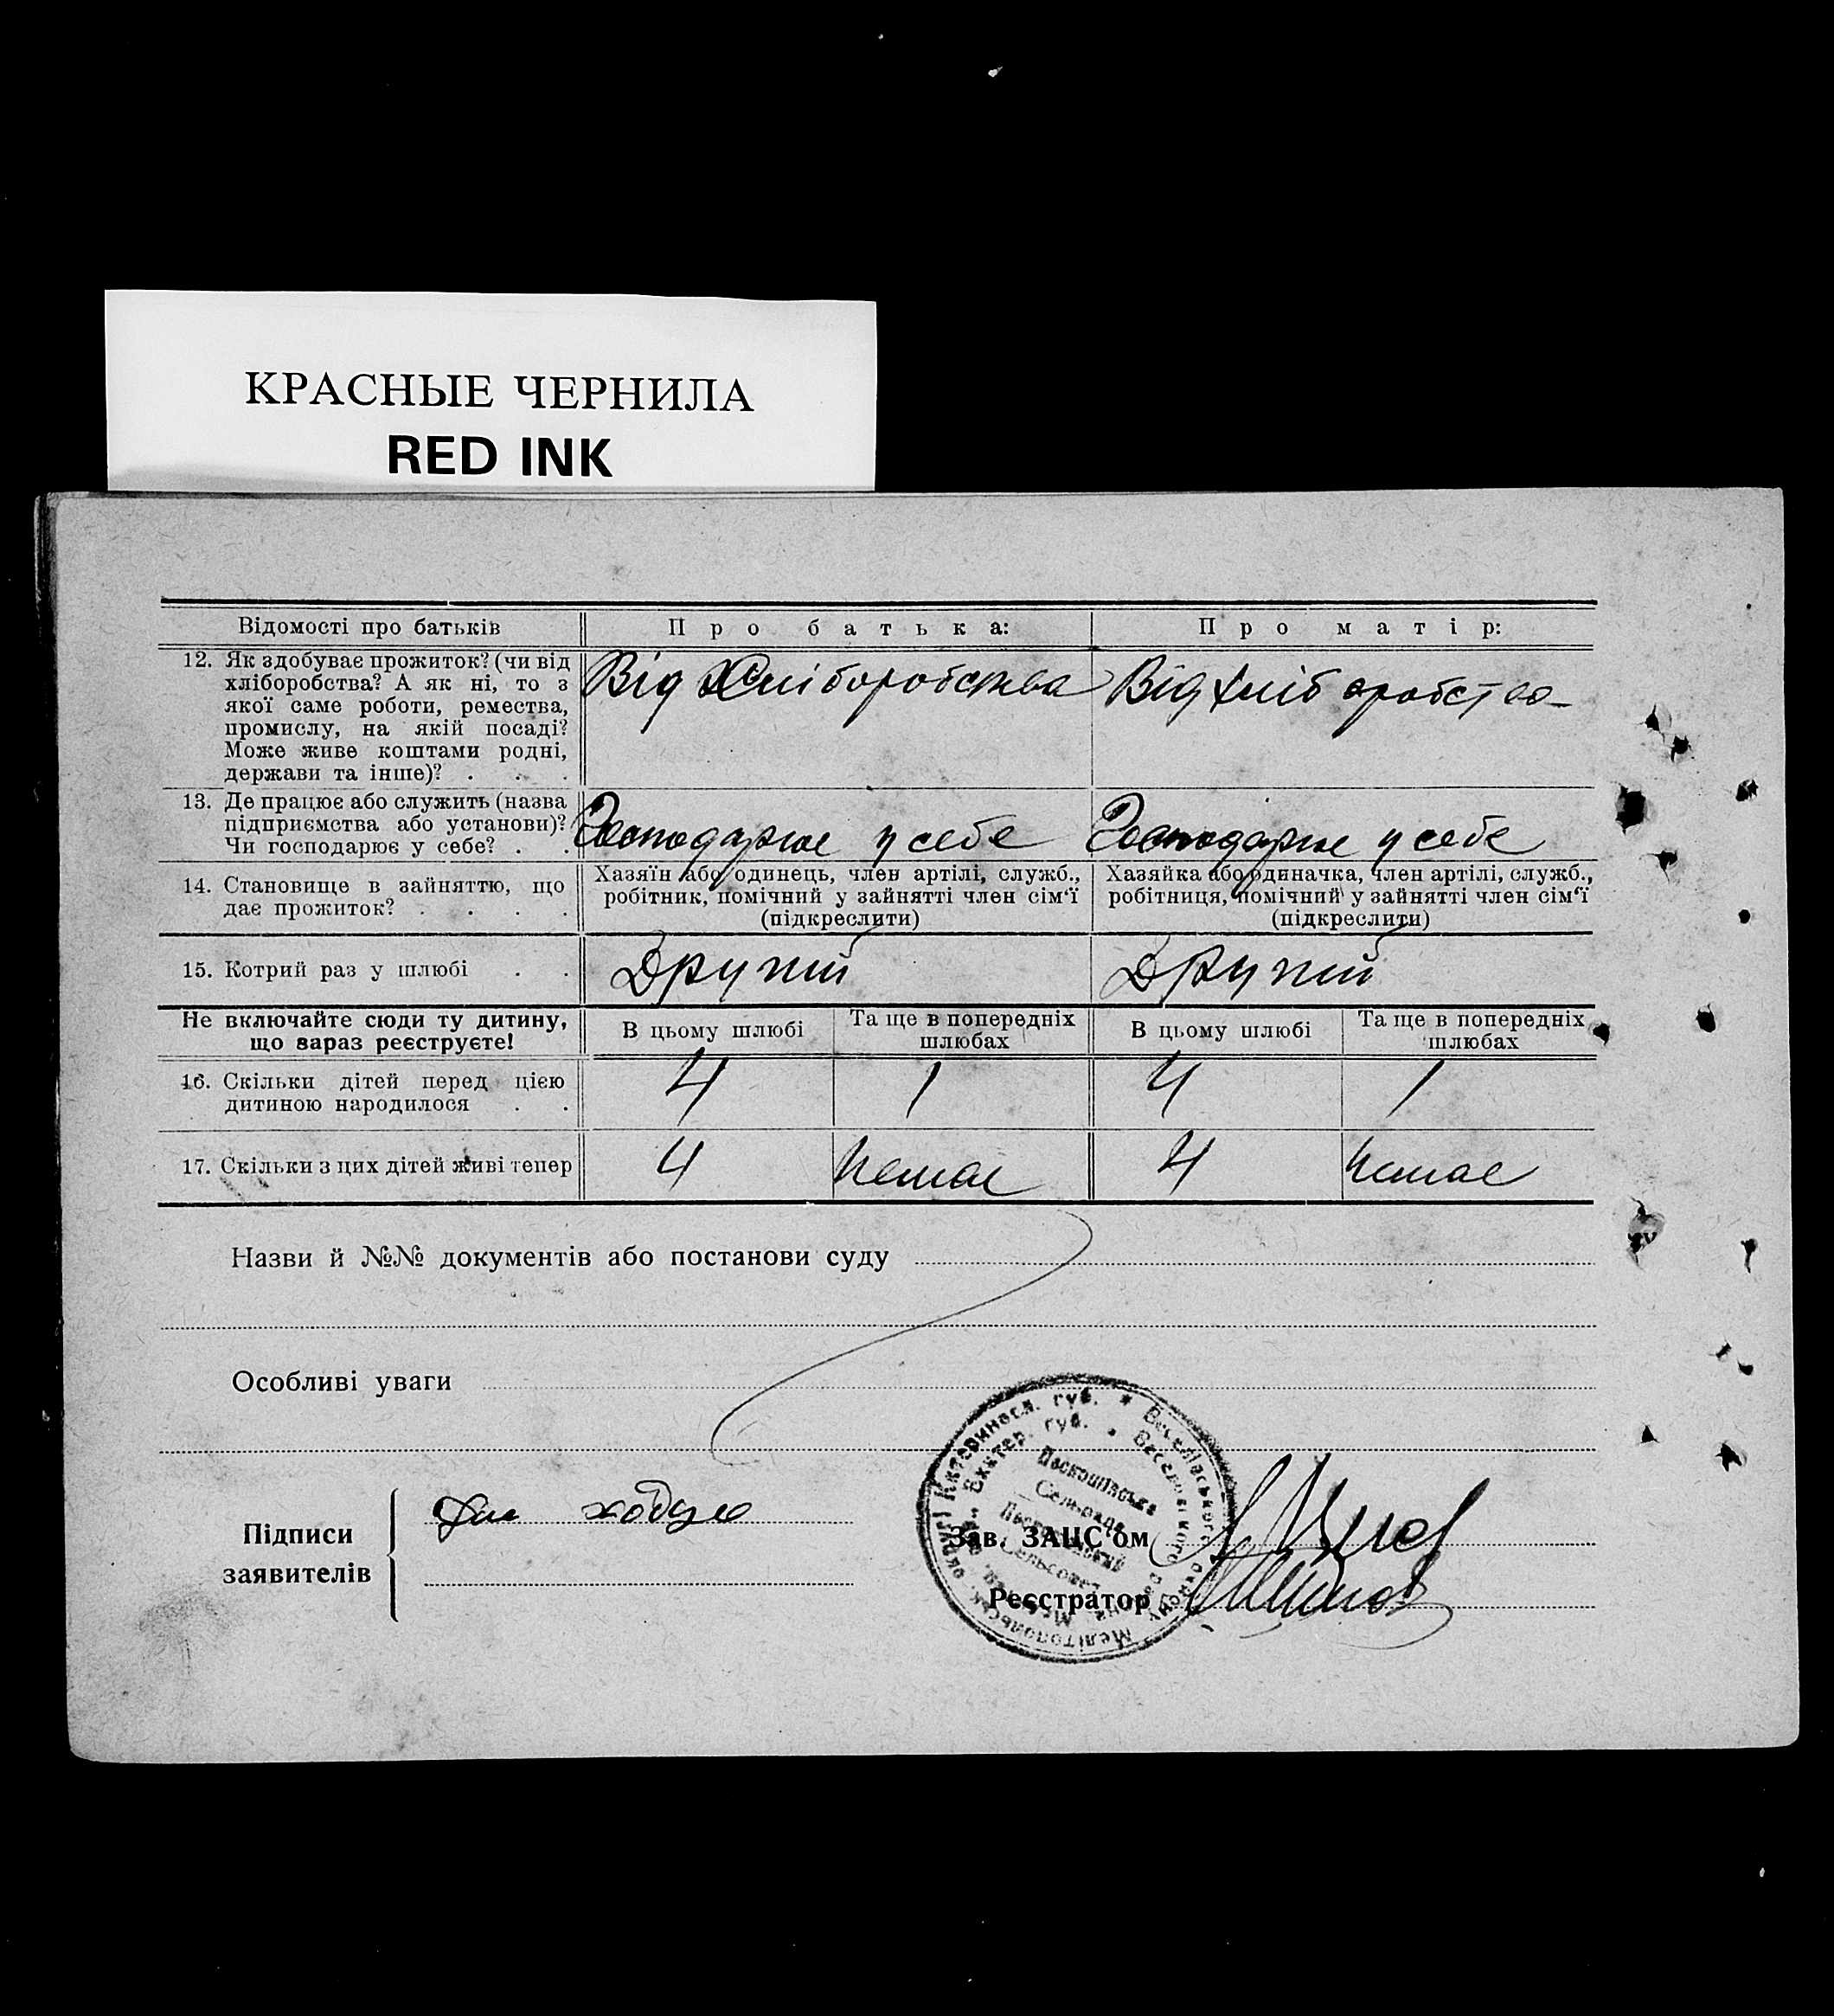 КРАСНЫЕ ЧЕРНИЛА
RED INK
Відомості про батьків
Про батька:
Про матір:
12. Як здобуває прожиток? (чи від
хліборобства? А як ні, то з
якої саме роботи, ремества,
промислу, на якій посаді?
Може живе коштами родні,
держави та інше)? . . .
Від Хліборобства
Від хліборобства
13. Де працює або служить (назва
підприємства або установи)?
Чи господарює у себе? . .
Господарює у себе
Господарює у себе
14. Становище в зайняттю, що
дає прожиток? . . . .
Хазяїн або одинець, член артілі, служб.,
робітник, помічний у зайнятті член сім'ї
(підкреслити)
Хазяйка або одиначка, член артілі, служб.,
робітниця, помічний у зайнятті член сім'ї
(підкреслити)
15. Котрий раз у шлюбі . .
Другий
Другий
Не включайте сюди ту дитину,
що зараз реєструєте!
В цьому шлюбі
Та ще в попередніх
шлюбах
В цьому шлюбі
Та ще в попередніх
шлюбах
16. Скільки дітей перед цією
дитиною народилося . .
4
1
4
1
17. Скільки з цих дітей живі тепер
4
Немає
4
Немає
Назви й №№ документів або постанови суду
Особливі уваги
Підписи
заявителів
Зав. ЗАЦС'ом
Реєстратор